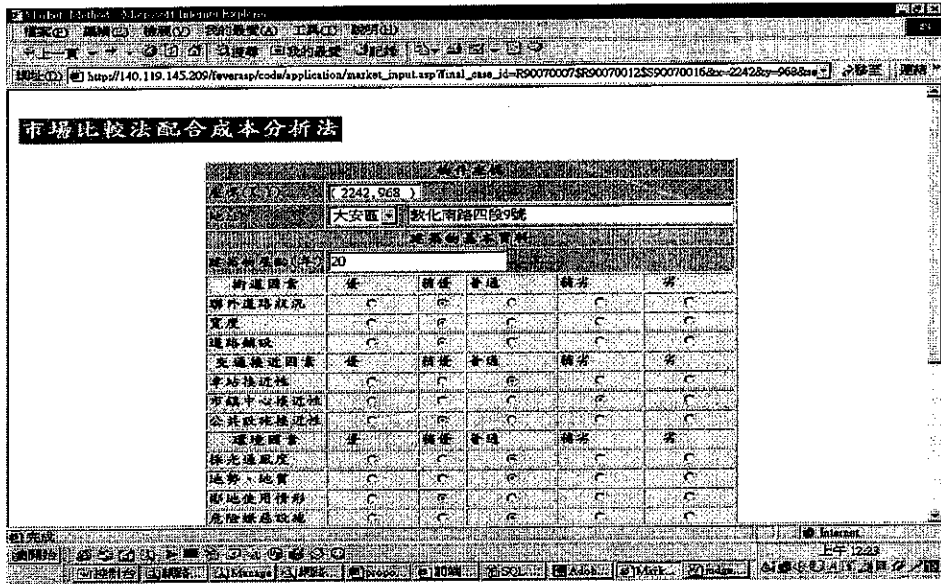 Market Method - Microsoft Internet Explorer
檔案(F) 編輯(E) 檢視(V) 我的最愛(A) 工具(T) 說明(H)
上一頁 搜尋 我的最愛 記錄
網址(D) http://140.119.145.209/feverasp/code/application/market_input.asp?final_case_id=R90070007$R90070012$S90070016&x=2242&y=968& 移至 連結
市場比較法配合成本分析法
(2242,968 )
大安區 敦化南路四段9號
建築物基本資料
20
街道因素 優 稍優 普通 稍劣 劣
聯外道路狀況
寬度
道路鋪設
交通接近因素 優 稍優 普通 稍劣 劣
車站接近性
市鎮中心接近性
公共設施接近性
環境因素 優 稍優 普通 稍劣 劣
採光通風度
地勢、地質
鄰地使用情形
危險嫌惡設施
完成 Internet
開始 上午 12:23
控制台 網路... Manage 網路... propo... SQL... Adob... Mark...